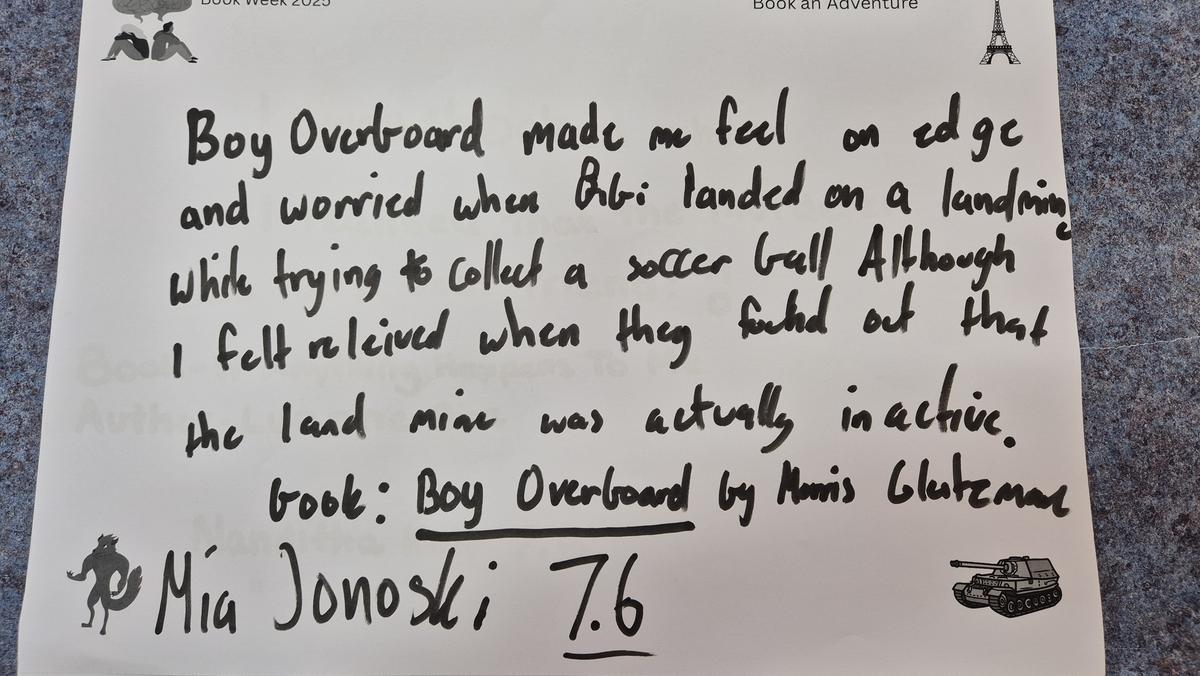 Book Week 2025
Book an Adventure
Boy Overboard made me feel on edge
and worried when Bibi landed on a landmine
while trying to collect a soccer ball Although
I felt releived when they found out that
the land mine was actually inactive.
book: Boy Overboard by Morris Gleitzman
Mia Jonoski 7.6